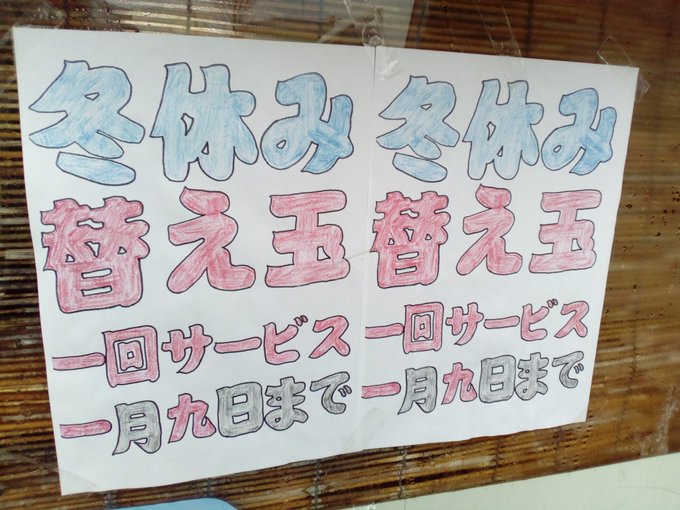 冬休み
替え玉
一回サービス
一月九日まで
冬休み
替え玉
一回サービス
一月九日まで